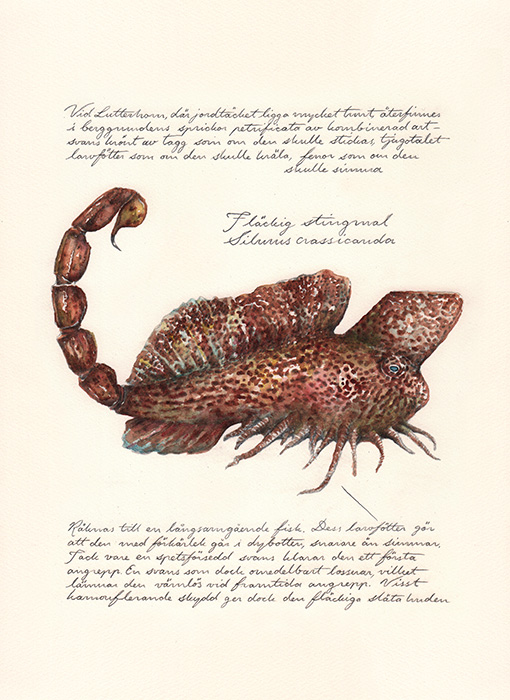 Vid Lutterhorn, där jordtäcket ligga mycket tunt återfinnes
i berggrundens sprickor petrificata av kombinerad art –
svans krönt av tagg som om den skulle stickas, tjugotalet
larvfötter som om den skulle kräla, fenor som om den
skulle simma
Fläckig stingmal
Silurus crassicauda
Räknas till en långsamgående fisk. Dess larvfötter gör
att den med förkärlek går i dybotten, snarare än simmar.
Tack vare en spetsförsedd svans klarar den ett första
angrepp. En svans som dock omedelbart lossnar, vilket
lämnar den värnlös vid framtida angrepp. Visst
kamouflerande skydd ger dock den fläckiga släta huden